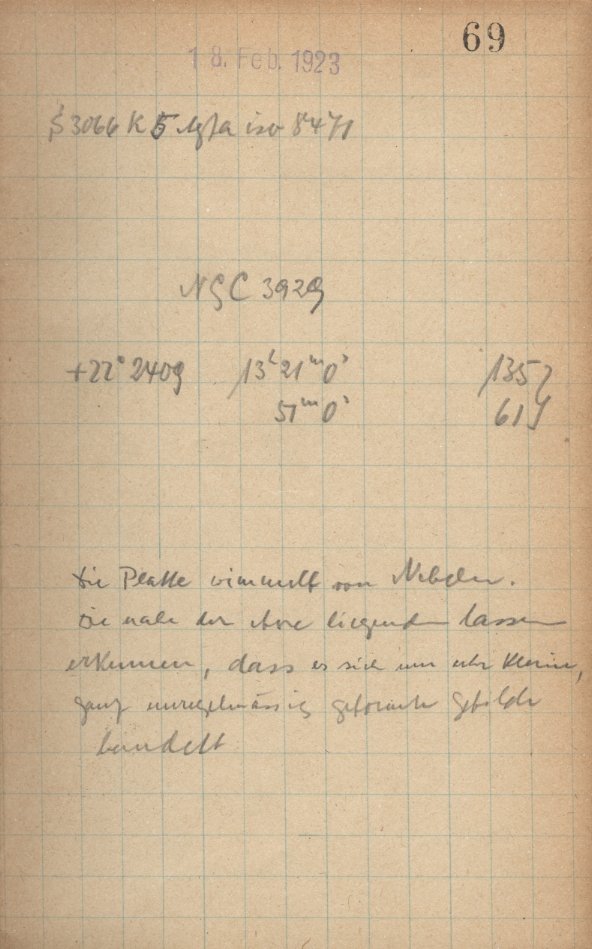 69
18. Feb. 1923
S 3066 K 5 Agfa iso 8471
NGC 3929
+22° 2409 13ʰ 21ᵐ 0ˢ 1357
51ᵐ 0ˢ 619
Die Platte wimmelt von Nebeln.
Die nahe der Axe liegenden lassen
erkennen, dass es sich um sehr kleine,
ganz unregelmässig geformte Gebilde
handelt